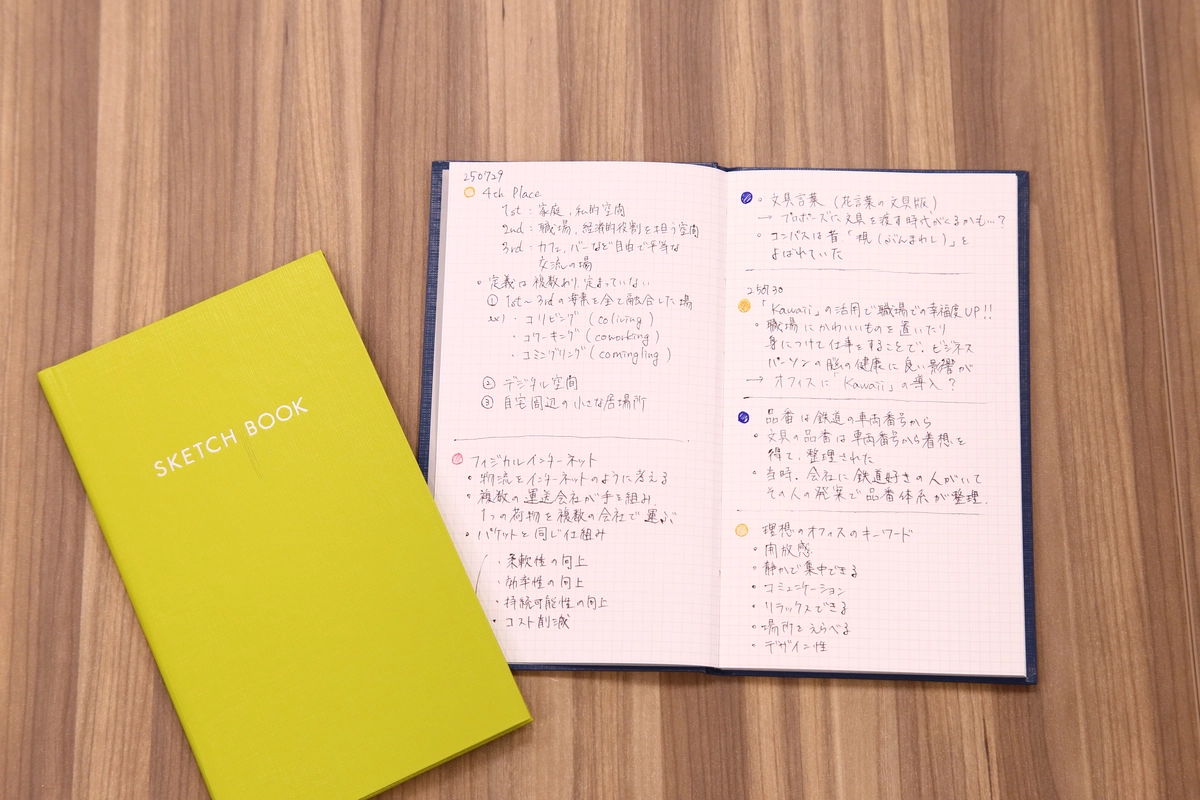 SKETCH BOOK
250729
4th Place
1st : 家庭、私的空間
2nd : 職場、経済的役割を担う空間
3rd : カフェ、バーなど自由で平等な
交流の場
・定義は複数あり、定まっていない
① 1st〜3rdの要素を全て融合した場
ex) ・コリビング (coliving)
・コワーキング (coworking)
・コミングリング (comingling)
② デジタル空間
③ 自宅周辺の小さな居場所
フィジカルインターネット
・物流をインターネットのように考える
・複数の運送会社が手を組み、
1つの荷物を複数の会社で運ぶ
・パケットと同じ仕組み
・柔軟性の向上
・効率性の向上
・持続可能性の向上
・コスト削減
・文具言葉 (花言葉の文具版)
→ プロポーズに文具を渡す時代がくるかも…?
・コンパスは昔「規(ぶんまわし)」と
よばれていた
250730
「Kawaii」の活用で職場での幸福度UP!!
・職場にかわいいものを置いたり
身につけて仕事をすることで、ビジネス
パーソンの脳の健康に良い影響が
→ オフィスに「Kawaii」の導入?
品番は鉄道の車両番号から
・文具の品番は車両番号から着想を
得て、整理された
・当時、会社に鉄道好きの人がいて
その人の発案で品番体系が整理.
理想のオフィスのキーワード
・開放感
・静かで集中できる
・コミュニケーション
・リラックスできる
・場所をえらべる
・デザイン性